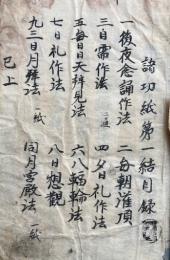 諸切紙第一結目録
一後夜念誦作法 二毎朝灌頂
三日需作法 四夕日礼作法
五毎日日天拜見法 六八輻輪法
七日礼作法 八日想觀
九三日月拜法 一紙 同月宮殿法 一紙
已上